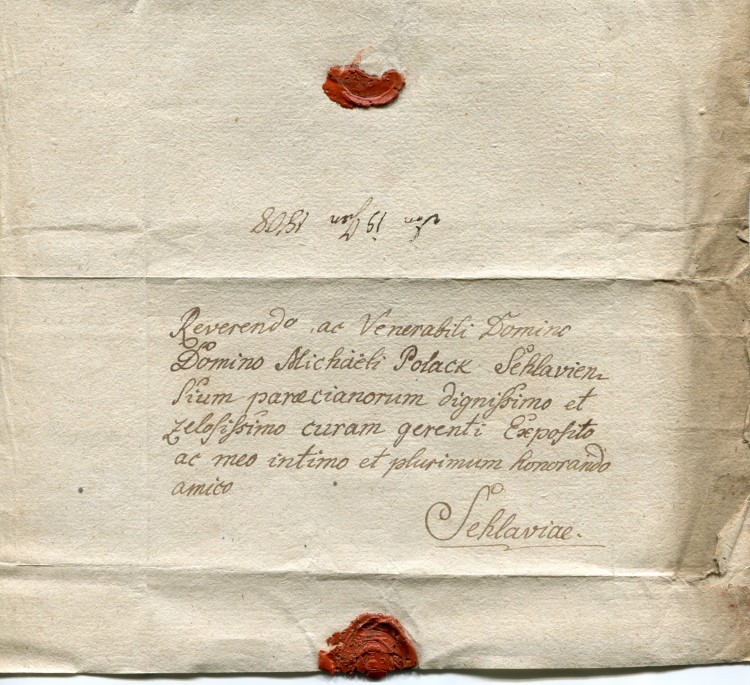 von 19 Jan 1808
Reverendo ac Venerabili Domino
Domino Michaëli Polack Sehlavien-
sium paræcianorum dignissimo et
zelosissimo curam gerenti Exposito
ac meo intimo et plurimum honorando
amico
Sehlaviae.